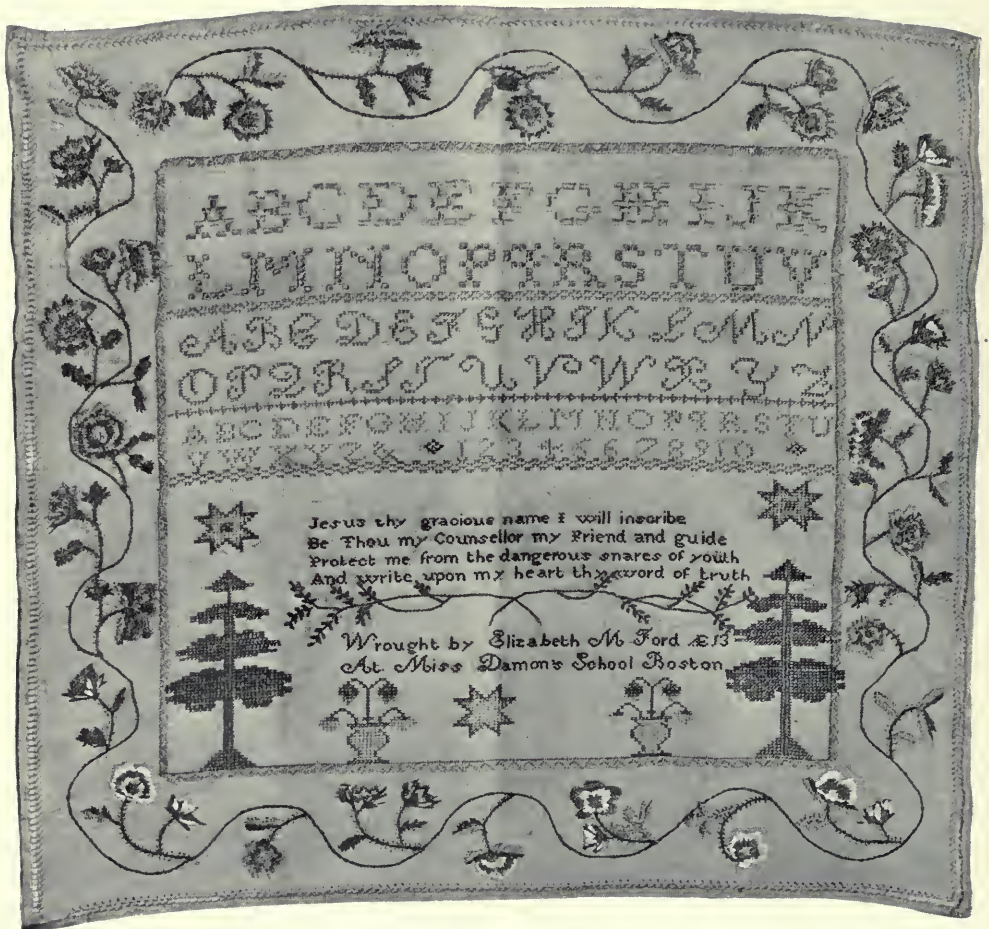 A B C D E F G H I J K
L M N O P Q R S T U V
A B C D E F G H I K L M N
O P Q R S T U V W X Y Z
A B C D E F G H I J K L M N O P Q R S T U
V W X Y Z & 1 2 3 4 5 6 7 8 9 10
Jesus thy gracious name I will inscribe
Be Thou my Counsellor my Friend and guide
Protect me from the dangerous snares of youth
And write upon my heart thy word of truth
Wrought by Elizabeth M Ford Æ 13
At Miss Damon's School Boston